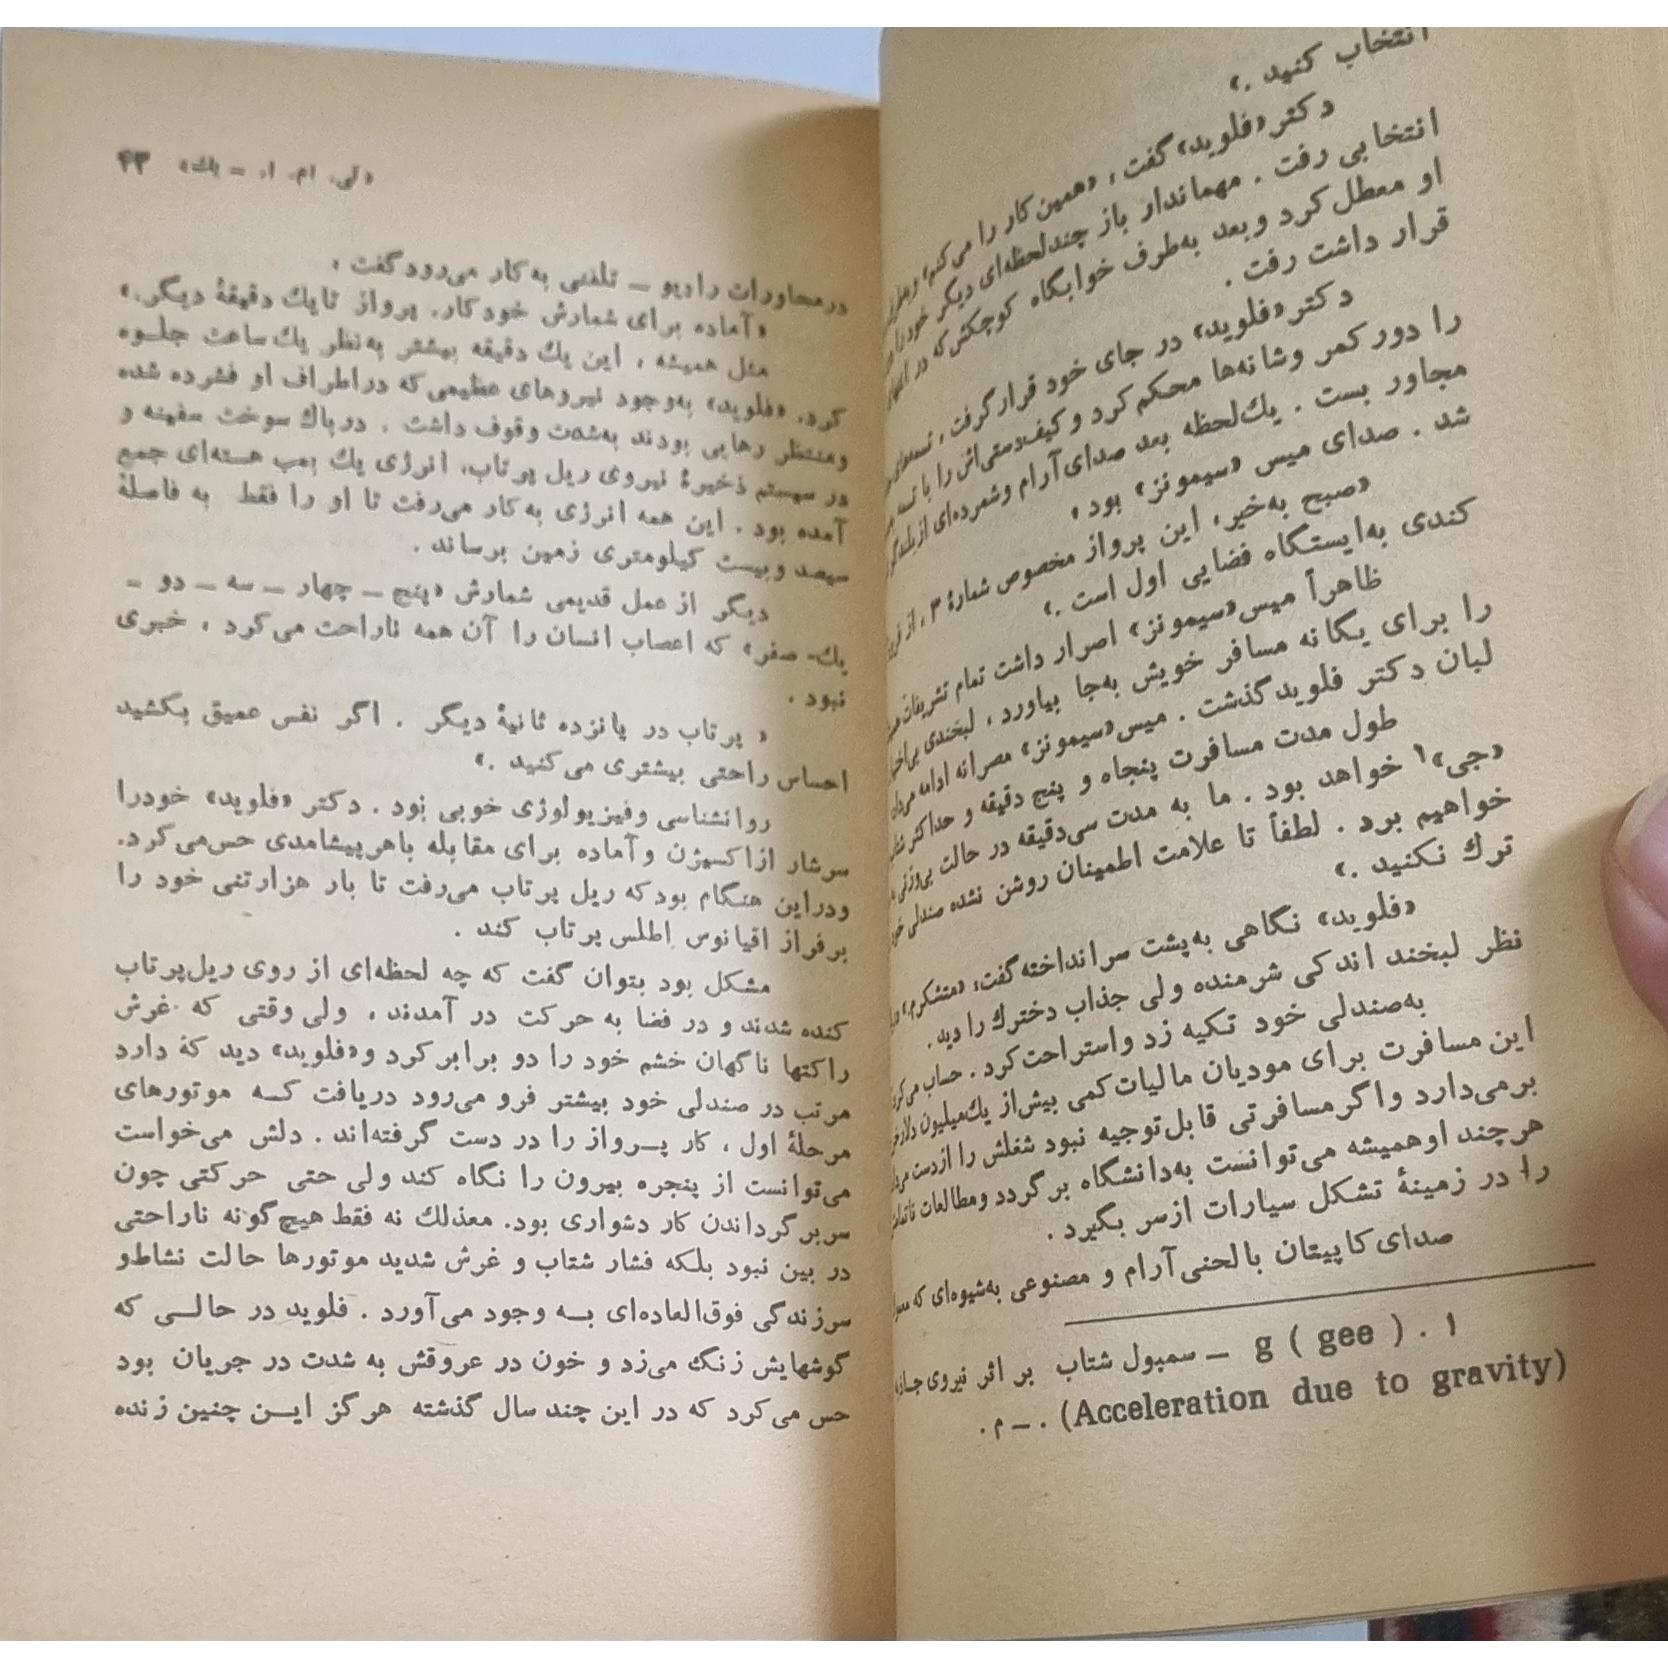 انتخاب کنید .»
دکتر «فلوید» گفت ، «همین کار را می‌کنم»
انتخابی رفت . مهماندار باز چندلحظه‌ای دیگر خود را
او معطل کرد و بعد به‌طرف خوابگاه کوچکش که در
قرار داشت رفت .
دکتر «فلوید» در جای خود قرار گرفت ،
را دور کمر و شانه‌ها محکم کرد و کیف‌دستی‌اش را با تسمه
مجاور بست . یك‌لحظه بعد صدای آرام و شمرده‌ای از بلندگو
شد . صدای میس «سیمونز» بود ،
«صبح به‌خیر، این پرواز مخصوص شمارهٔ ۳ ، از
کندی به‌ایستگاه فضایی اول است .»
ظاهراً میس «سیمونز» اصرار داشت تمام تشریفات
را برای یگانه مسافر خویش به‌جا بیاورد ، لبخندی
لبان دکتر فلوید گذشت . میس «سیمونز» مصرانه ادامه
طول مدت مسافرت پنجاه و پنج دقیقه و حداکثر
«جی»۱ خواهد بود . ما به مدت سی‌دقیقه در حالت بی‌وزنی
خواهیم برد . لطفاً تا علامت اطمینان روشن نشده صندلی
ترك نکنید .»
«فلوید» نگاهی به‌پشت سر انداخته گفت، «متشکرم.»
نظر لبخند اندکی شرمنده ولی جذاب دخترك را دید.
به‌صندلی خود تکیه زد و استراحت کرد . حساب
این مسافرت برای مودیان مالیات کمی بیش‌از یك‌میلیون دلار
برمی‌دارد و اگر مسافرتی قابل‌توجیه نبود شغلش را ازدست
هرچند او همیشه می‌توانست به‌دانشگاه برگردد و مطالعات
را در زمینهٔ تشکل سیارات ازسر بگیرد .
صدای کاپیتان با لحنی آرام و مصنوعی به‌شیوه‌ای که
۱ . g ( gee ) — سمبول شتاب بر اثر نیروی
(Acceleration due to gravity) . — م .
«تی. ام. ا. — یك» ۴۳
درمحاورات رادیو — تلفنی به‌کار می‌رود گفت ،
«آماده برای شمارش خودکار. پرواز تا یك دقیقهٔ دیگر.»
مثل همیشه ، این یك دقیقه بیشتر به‌نظر یك ساعت جلـوه
کرد. «فلوید» به‌وجود نیروهای عظیمی که دراطراف او فشرده شده
ومنتظر رهایی بودند به‌شدت وقوف داشت . درباك سوخت سفینه و
در سیستم ذخیرهٔ نیروی ریل پرتاب، انرژی یك بمب هسته‌ای جمع
آمده بود . این همه انرژی به‌کار می‌رفت تا او را فقط به فاصلهٔ
سیصد وبیست کیلومتری زمین برساند .
دیگر از عمل قدیمی شمارش «پنج — چهار — سه — دو —
یك- صفر» که اعصاب انسان را آن همه ناراحت می‌کرد ، خبری
نبود .
« پرتاب در پانزده ثانیهٔ دیگر . اگر نفس عمیق بکشید
احساس راحتی بیشتری می‌کنید .»
روانشناسی وفیزیولوژی خوبی بود . دکتر «فلوید» خودرا
سرشار ازاکسیژن و آماده برای مقابله باهرپیشامدی حس‌می‌کرد.
ودراین هنگام بودکه ریل پرتاب می‌رفت تا بار هزارتنی خود را
برفراز اقیانوس اطلس پرتاب کند .
مشکل بود بتوان گفت که چه لحظه‌ای از روی ریل‌پرتاب
کنده شدند و در فضا به حرکت در آمدند ، ولی وقتی که غرش
راکتها ناگهان خشم خود را دو برابر کرد و«فلوید» دید که دارد
مرتب در صندلی خود بیشتر فرو می‌رود دریافت کـه موتورهای
مرحلهٔ اول ، کار پــرواز را در دست گرفته‌اند . دلش می‌خواست
می‌توانست از پنجره بیرون را نگاه کند ولی حتی حرکتی چون
سربرگرداندن کار دشواری بود. معذلك نه فقط هیچ‌گونه ناراحتی
در بین نبود بلکه فشار شتاب و غرش شدید موتورها حالت نشاط و
سرزندگی فوق‌العاده‌ای بــه وجود می‌آورد . فلوید در حالــی که
گوشهایش زنگ می‌زد و خون در عروقش به شدت در جریان بود
حس می‌کرد که در این چند سال گذشته هرگز ایــن چنین زنده